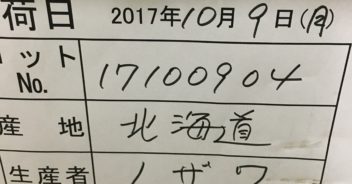 荷日 2017年10月9日(月)
ット No. 17100904
産地 北海道
生産者 ノザワ